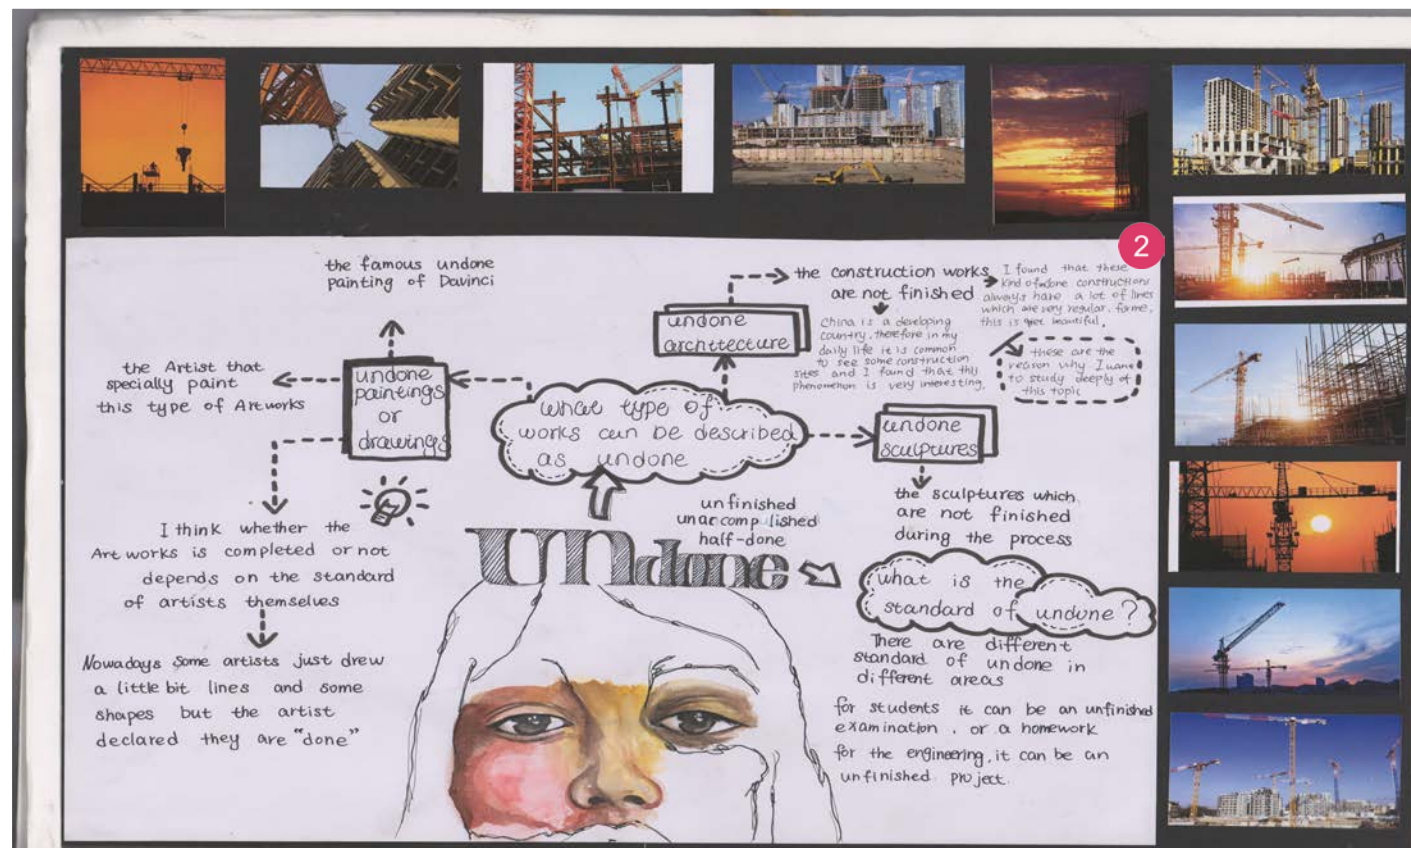 2
the famous undone
painting of Davinci
the Artist that
specially paint
this type of Artworks
undone
paintings
or
drawings
I think whether the
Art works is completed or not
depends on the standard
of artists themselves
Nowadays some artists just drew
a little bit lines and some
shapes but the artist
declared they are "done"
what type of
works can be described
as undone
undone
architecture
the construction works
are not finished
China is a developing
country, therefore in my
daily life it is common
to see some construction
sites and I found that this
phenomenon is very interesting.
I found that these
kind of undone constructions
always have a lot of lines
which are very regular. for me,
this is beautiful.
these are the
reason why I want
to study deeply of
this topic
undone
sculptures
the sculptures which
are not finished
during the process
unfinished
unaccompulished
half-done
UNdone
what is the
standard of undone?
There are different
standard of undone in
different areas
for students it can be an unfinished
examination, or a homework
for the engineering, it can be an
unfinished project.